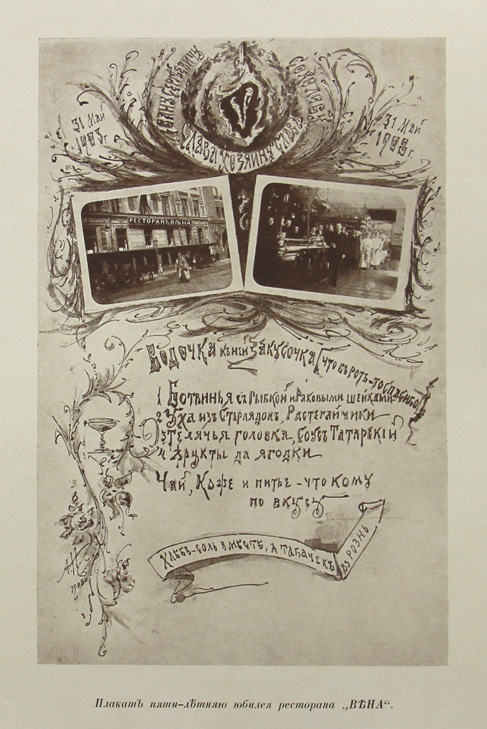 ИВАНУ СЕРГѢЕВИЧУ СОКОЛОВУ
СЛАВА ХОЗЯИНУ СЛАВА
31 Май 1903 г.
31 Май 1908 г.
РЕСТОРАНЪ ВѢНА
Водочка къ ней Закусочка (что въ ротъ-то спасибо)
1 Ботвинья съ Рыбкой и Раковыми шейками
2 Уха изъ Стерлядокъ, Растегайчики
3 Телячья головка, Соусъ Татарскій
4 Фрукты да ягодки
Чай, Кофе и питье - что кому
по вкусу
Хлебъ-соль вмѣстѣ, а табачекъ
въ рознь
Плакатъ пяти-лѣтняго юбилея ресторана „ВѢНА“.